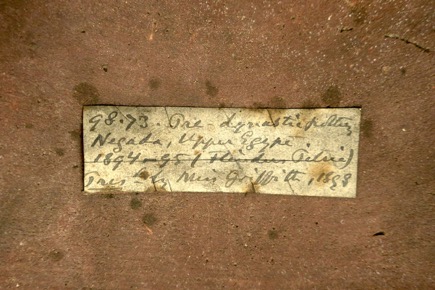 98.73 Pre-dynastic pottery
Nagada, Upper Egypt
1894-95 (Flinders Petrie)
Pres. by Miss Griffith, 1898